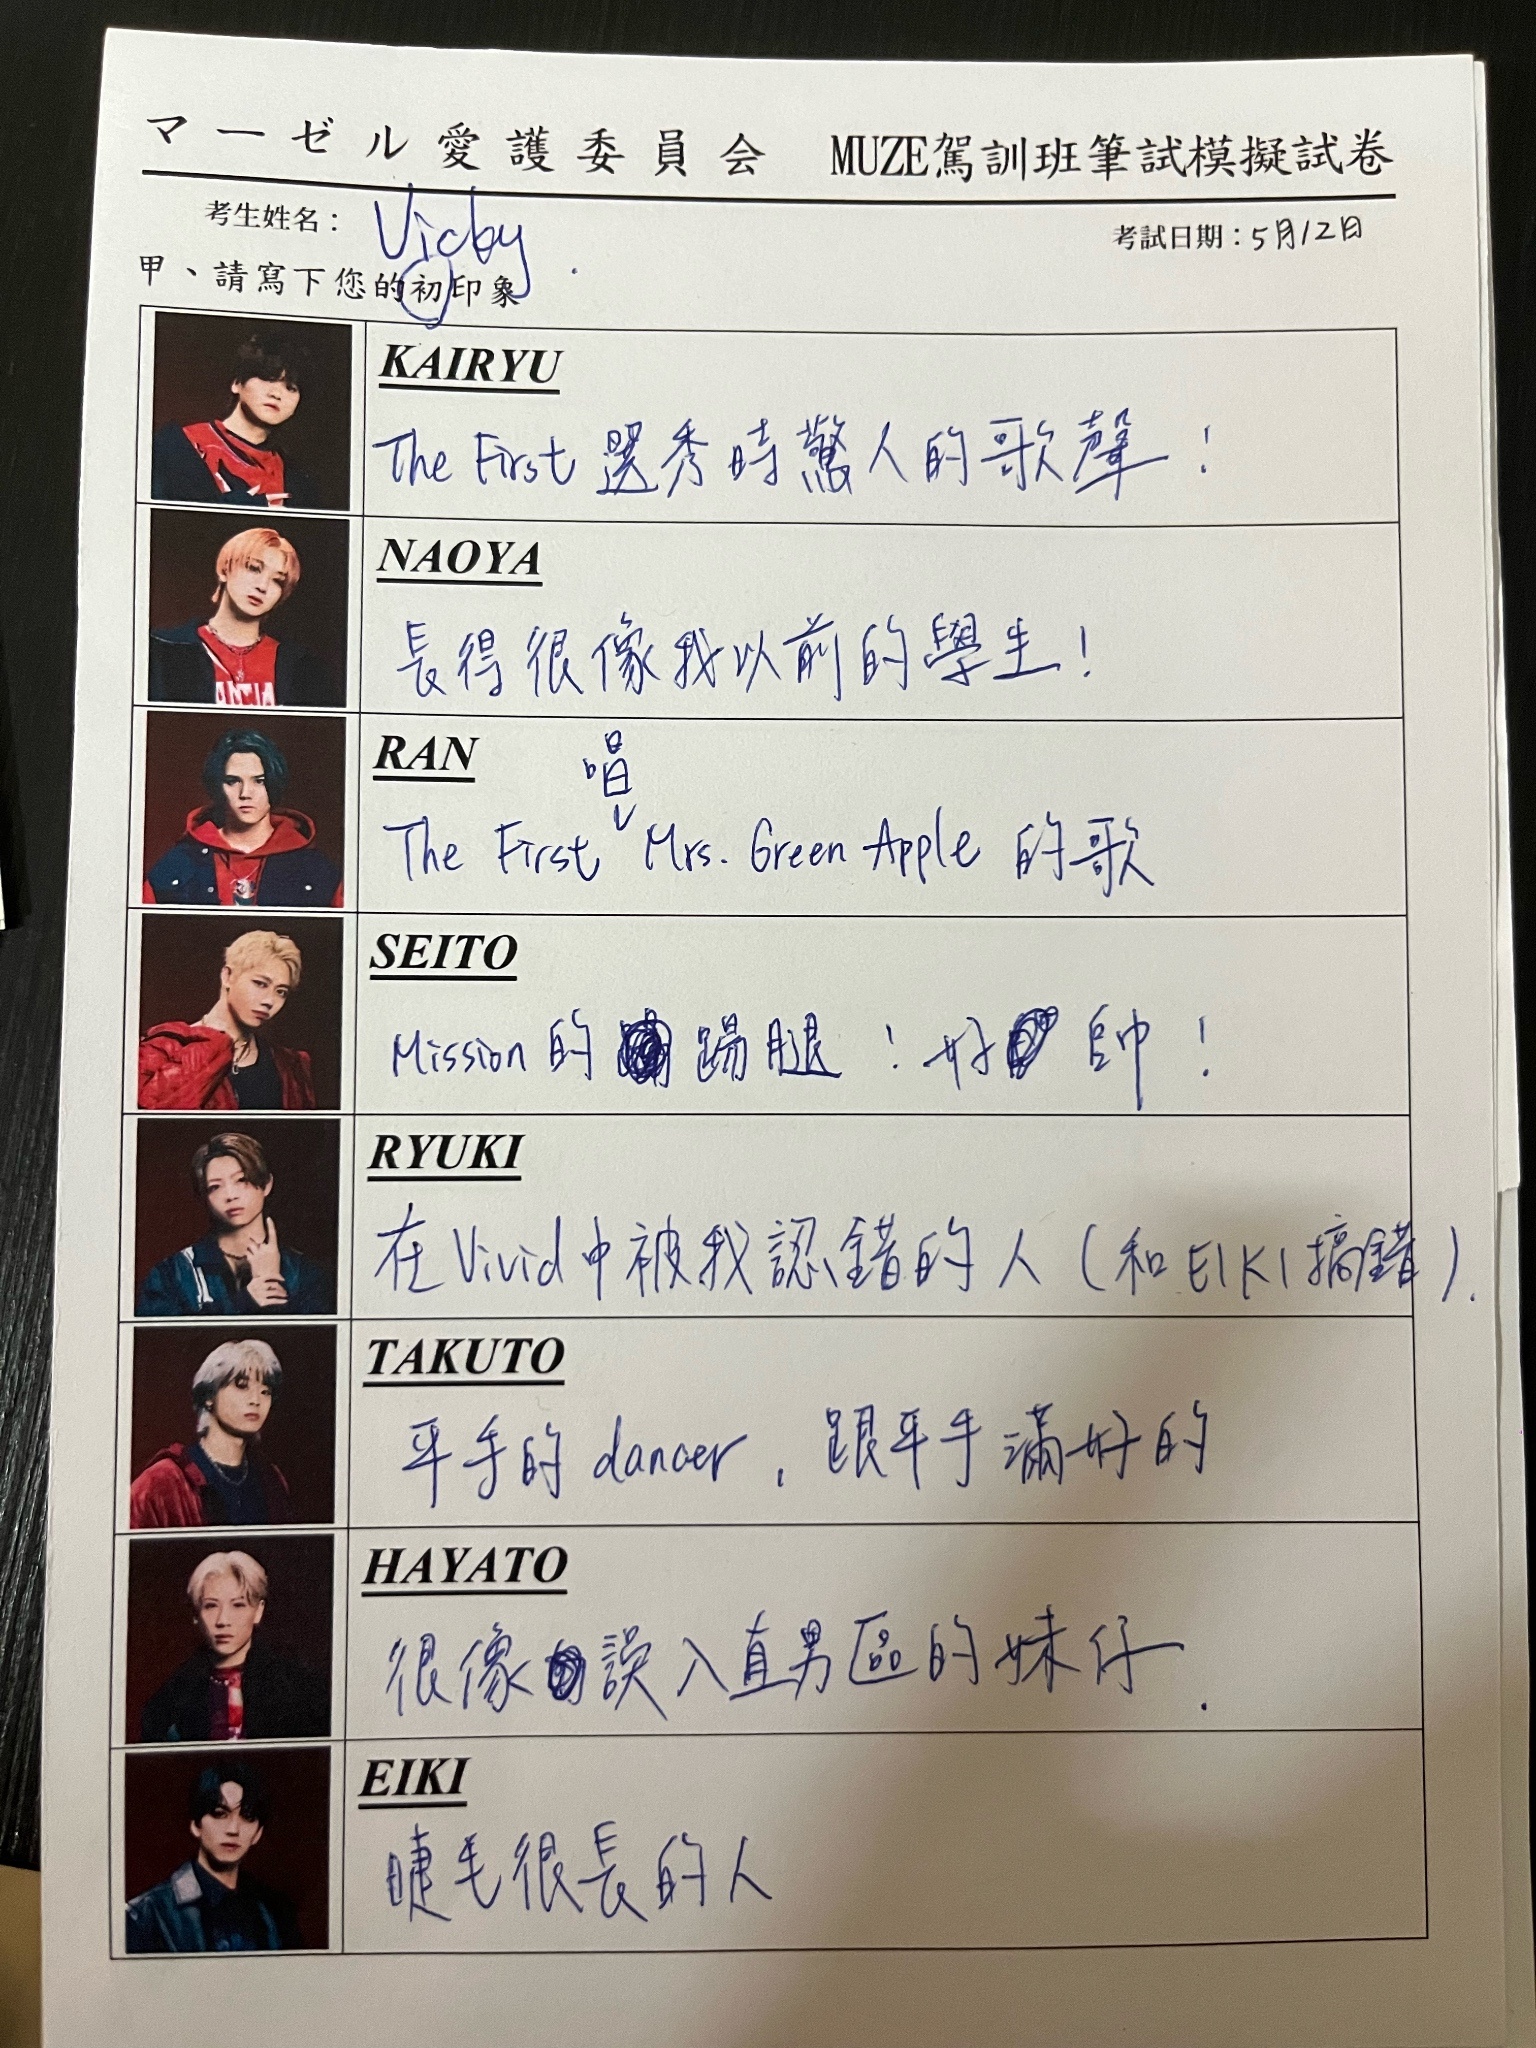 マーゼル愛護委員会 MUZE駕訓班筆試模擬試卷
考生姓名： Vicky
考試日期：5月12日
甲、請寫下您的初印象
KAIRYU
The First 選秀時驚人的歌聲！
NAOYA
長得很像我以前的學生！
RAN
The First 唱 Mrs. Green Apple 的歌
SEITO
Mission的踢腿！好帥！
RYUKI
在Vivid中被我認錯的人（和EIKI搞錯）.
TAKUTO
平手的dancer，跟平手滿好的
HAYATO
很像誤入直男區的妹仔.
EIKI
睫毛很長的人